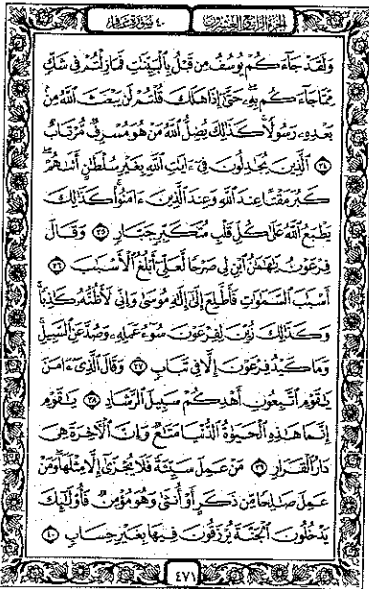 الجزء الرابع والعشرون
٤٠ سورة غافر
وَلَقَدْ جَآءَكُمْ يُوسُفُ مِن قَبْلُ بِٱلْبَيِّنَٰتِ فَمَا زِلْتُمْ فِى شَكٍّ
مِّمَّا جَآءَكُم بِهِۦ حَتَّىٰٓ إِذَا هَلَكَ قُلْتُمْ لَن يَبْعَثَ ٱللَّهُ مِنۢ
بَعْدِهِۦ رَسُولًا ۚ كَذَٰلِكَ يُضِلُّ ٱللَّهُ مَنْ هُوَ مُسْرِفٌ مُّرْتَابٌ
٣٤ ٱلَّذِينَ يُجَٰدِلُونَ فِىٓ ءَايَٰتِ ٱللَّهِ بِغَيْرِ سُلْطَٰنٍ أَتَىٰهُمْ ۖ
كَبُرَ مَقْتًا عِندَ ٱللَّهِ وَعِندَ ٱلَّذِينَ ءَامَنُوا۟ ۚ كَذَٰلِكَ
يَطْبَعُ ٱللَّهُ عَلَىٰ كُلِّ قَلْبِ مُتَكَبِّرٍ جَبَّارٍ ٣٥ وَقَالَ
فِرْعَوْنُ يَٰهَٰمَٰنُ ٱبْنِ لِى صَرْحًا لَّعَلِّىٓ أَبْلُغُ ٱلْأَسْبَٰبَ ٣٦
أَسْبَٰبَ ٱلسَّمَٰوَٰتِ فَأَطَّلِعَ إِلَىٰٓ إِلَٰهِ مُوسَىٰ وَإِنِّى لَأَظُنُّهُۥ كَٰذِبًا ۚ
وَكَذَٰلِكَ زُيِّنَ لِفِرْعَوْنَ سُوٓءُ عَمَلِهِۦ وَصُدَّ عَنِ ٱلسَّبِيلِ ۚ
وَمَا كَيْدُ فِرْعَوْنَ إِلَّا فِى تَبَابٍ ٣٧ وَقَالَ ٱلَّذِىٓ ءَامَنَ
يَٰقَوْمِ ٱتَّبِعُونِ أَهْدِكُمْ سَبِيلَ ٱلرَّشَادِ ٣٨ يَٰقَوْمِ
إِنَّمَا هَٰذِهِ ٱلْحَيَوٰةُ ٱلدُّنْيَا مَتَٰعٌ وَإِنَّ ٱلْءَاخِرَةَ هِىَ
دَارُ ٱلْقَرَارِ ٣٩ مَنْ عَمِلَ سَيِّئَةً فَلَا يُجْزَىٰٓ إِلَّا مِثْلَهَا ۖ وَمَنْ
عَمِلَ صَٰلِحًا مِّن ذَكَرٍ أَوْ أُنثَىٰ وَهُوَ مُؤْمِنٌ فَأُو۟لَٰٓئِكَ
يَدْخُلُونَ ٱلْجَنَّةَ يُرْزَقُونَ فِيهَا بِغَيْرِ حِسَابٍ ٤٠
٤٧١